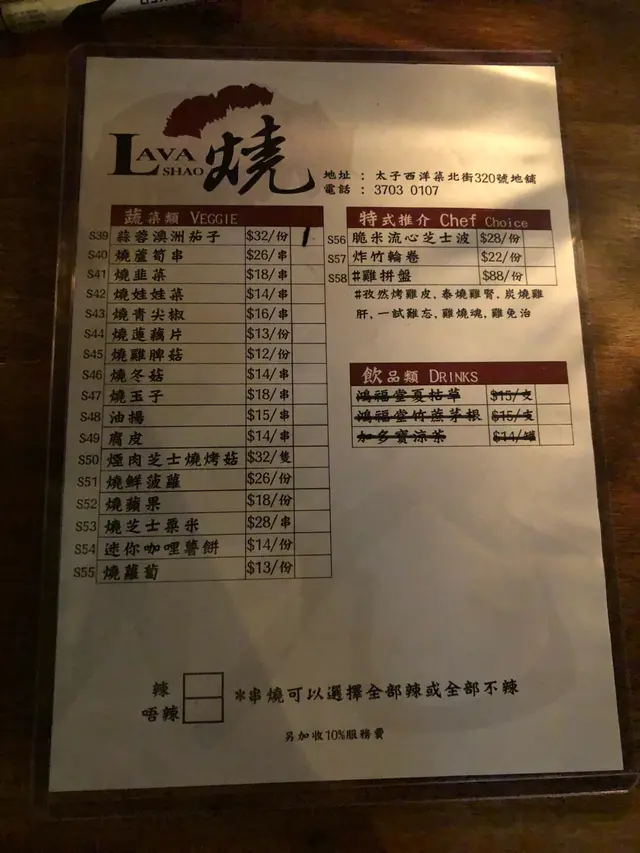 LAVA
SHAO
燒
地址 : 太子西洋菜北街320號地舖
電話 : 3703 0107
蔬菜類 VEGGIE
S39 蒜蓉澳洲茄子 $32/份 1
S40 燒蘆筍串 $26/串
S41 燒韭菜 $18/串
S42 燒娃娃菜 $14/串
S43 燒青尖椒 $16/串
S44 燒蓮藕片 $13/份
S45 燒雞脾菇 $12/份
S46 燒冬菇 $14/串
S47 燒玉子 $18/串
S48 油揚 $15/串
S49 腐皮 $14/串
S50 煙肉芝士燒烤菇 $32/隻
S51 燒鮮菠蘿 $26/份
S52 燒蘋果 $18/份
S53 燒芝士粟米 $28/串
S54 迷你咖哩薯餅 $14/份
S55 燒蘿蔔 $13/份
特式推介 Chef Choice
S56 脆米流心芝士波 $28/份
S57 炸竹輪卷 $22/份
S58 #雞拼盤 $88/份
#孜然烤雞皮, 泰燒雞腎, 炭燒雞
肝, 一試難忘, 雞燒魂, 雞免治
飲品類 DRINKS
鴻福堂夏枯草 $15/支
鴻福堂竹蔗茅根 $15/支
加多寶涼茶 $14/罐
辣
唔辣
*串燒可以選擇全部辣或全部不辣
另加收10%服務費